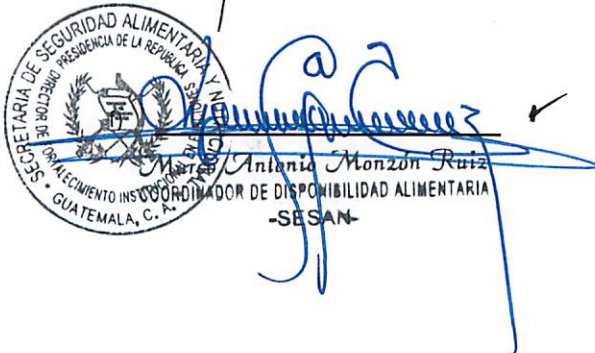 SECRETARIA DE SEGURIDAD ALIMENTARIA Y NUTRICIONAL
PRESIDENCIA DE LA REPUBLICA
DIRECTOR DE FORTALECIMIENTO INSTITUCIONAL
GUATEMALA, C. A.
Antonio Monzón Ruiz
COORDINADOR DE DISPONIBILIDAD ALIMENTARIA
-SESAN-